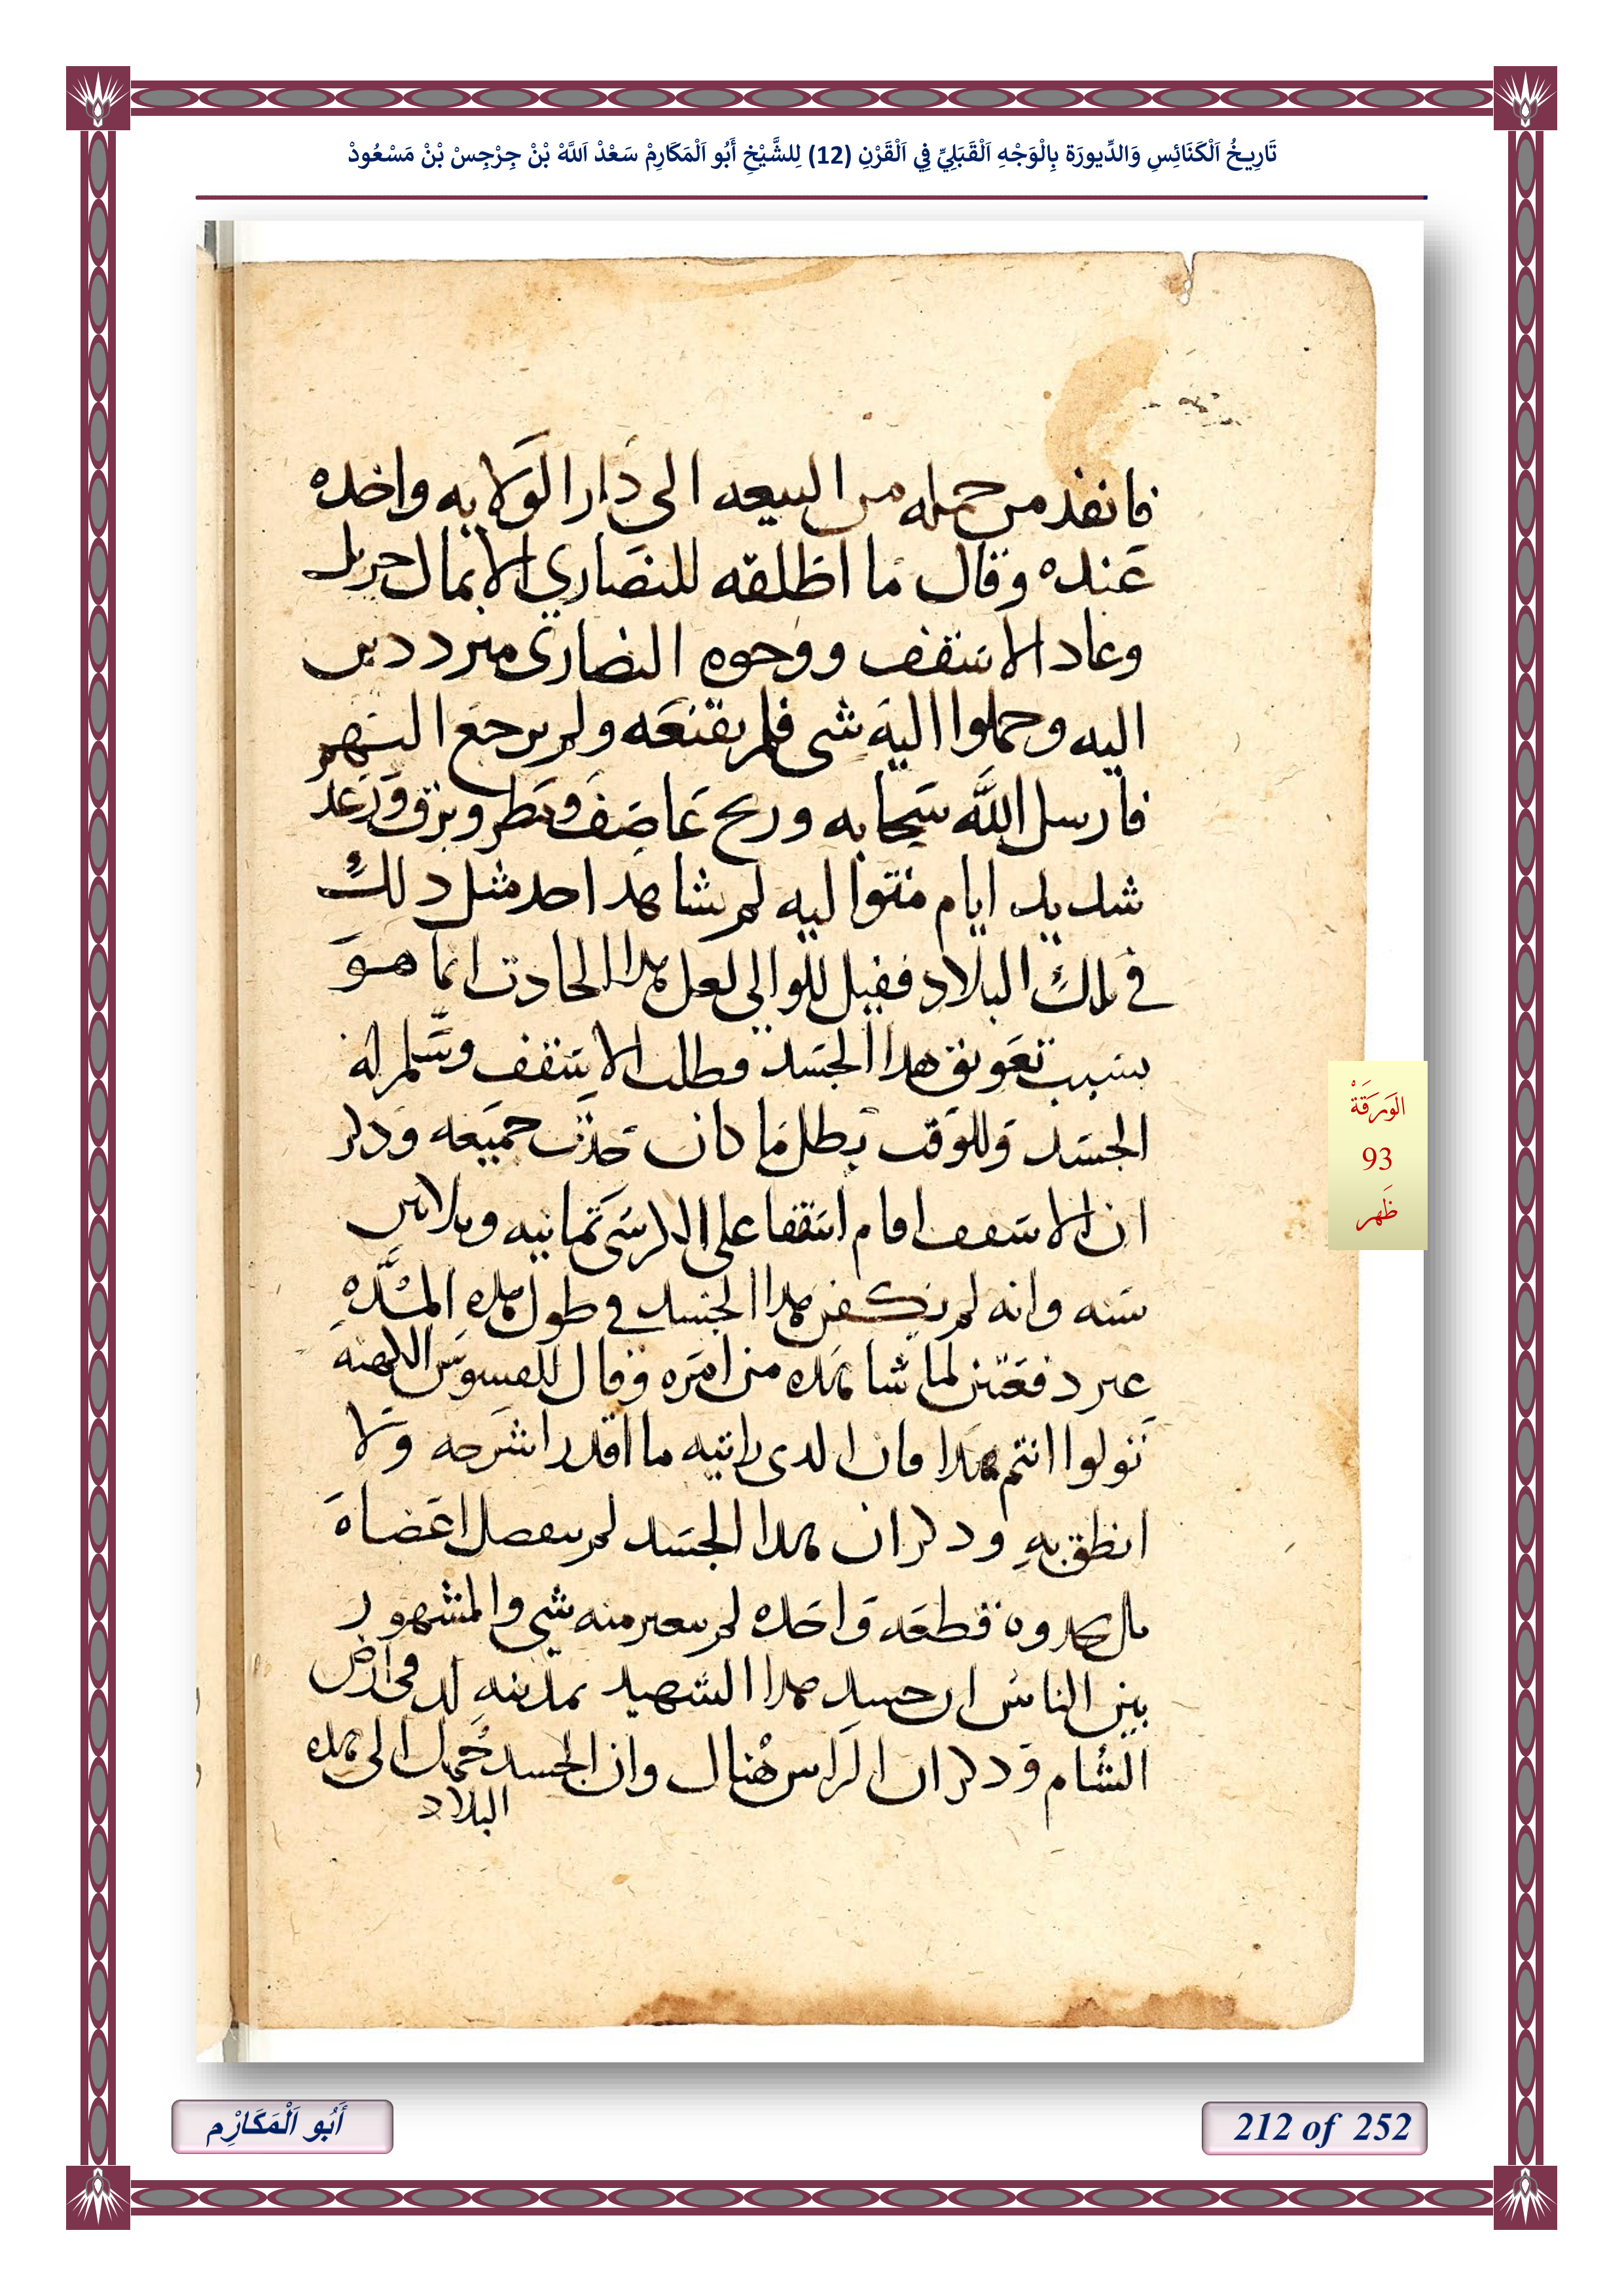 تَارِيخُ اَلْكَنَائِسِ وَالدِّيورَة بِالْوَجْهِ اَلْقَبَلِيِّ فِي اَلْقَرْنِ (12) لِلشَّيْخِ أَبُو اَلْمَكَارِمْ سَعْدْ اَللَّهْ بْنْ جِرْجِسْ بْنْ مَسْعُودْ
فانفذ من حمله من البيعه الى دار الولايه واخده
عنده وقال ما اطلقه للنصارى الا بمال جزيل
وعاد الاسقف ووجوه النصارى مترددين
اليه وحملوا اليه شى فلم يقنعه ولم يرجع اليهم
فارسل الله سحابه وريح عاصف ومطر وبرق ورعد
شديد ايام متواليه لم يشاهد احد مثل دلك
في تلك البلاد فقيل للوالي لعل هدا الحادت انما هو
بسبب تعويق هدا الجسد وطلب الاسقف وسلم له
الجسد وللوقت بطل ما كان حدث جميعه ودكر
ان الاسقف اقام اسقفا على الكرسى تمانيه وتلاتين
سنه وانه لم يكفن هدا الجسد في طول هده المده
غير دفعتين لما شاهده من امره وقال للقسوس الكهنه
تولوا انتم هدا فان الدى رايته ما اقدر اشرحه ولا
انطق به ودكر ان هدا الجسد لم ينفصل اعضاه
بل يجدوه قطعه واحده لم يتغير منه شي والمشهور
بين الناس ان جسد هدا الشهيد بمدينه لد في ارض
الشام ودكر ان الراس هناك وان الجسد حمل الى هده
البلاد
الوَرَقَةْ
93
ظَهر
أَبُو اَلْمَكَارِم
212 of 252